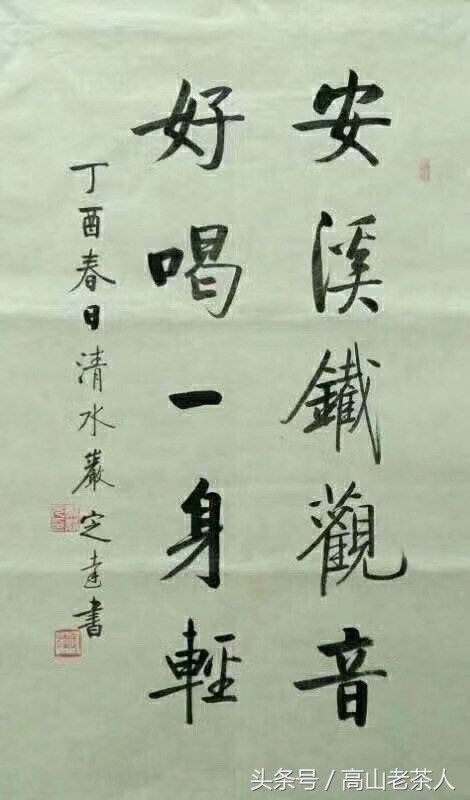 安溪鐵觀音
好喝一身輕
丁酉春日清水巖定達書
头条号/高山老茶人